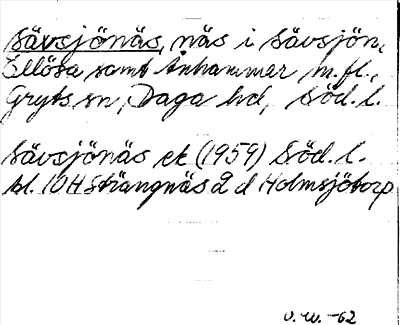 Sävsjönäs, näs i Sävsjön,
Ellösa samt Änhammar m.fl.,
Gryts sn, Daga hd, Söd. l.
Sävsjönäs ek (1959) Söd. l.
bl. 10H Strängnäs 2 d Holmsjötorp
U. W. -62